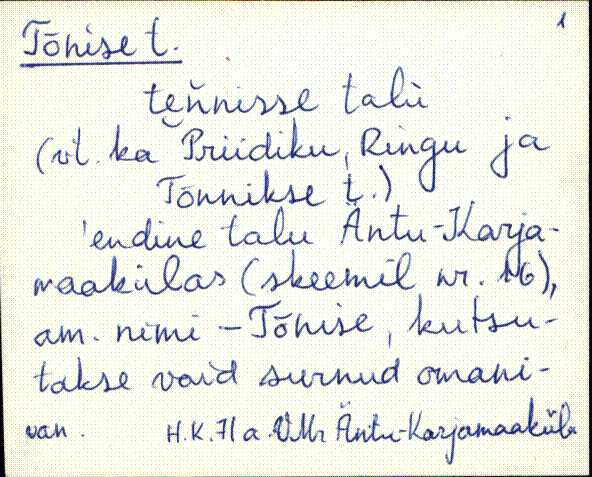 1
Tõnise t.
teňnisse talu
(vt. ka Priidiku, Ringu ja
Tõnnikse t.)
'endine talu Äntu-Karja-
maakülas (skeemil nr. 16),
am. nimi – Tõnise, kutsu-
takse vaid surnud omani-
van. H.K. 71 a. VMr Äntu-Karjamaaküla